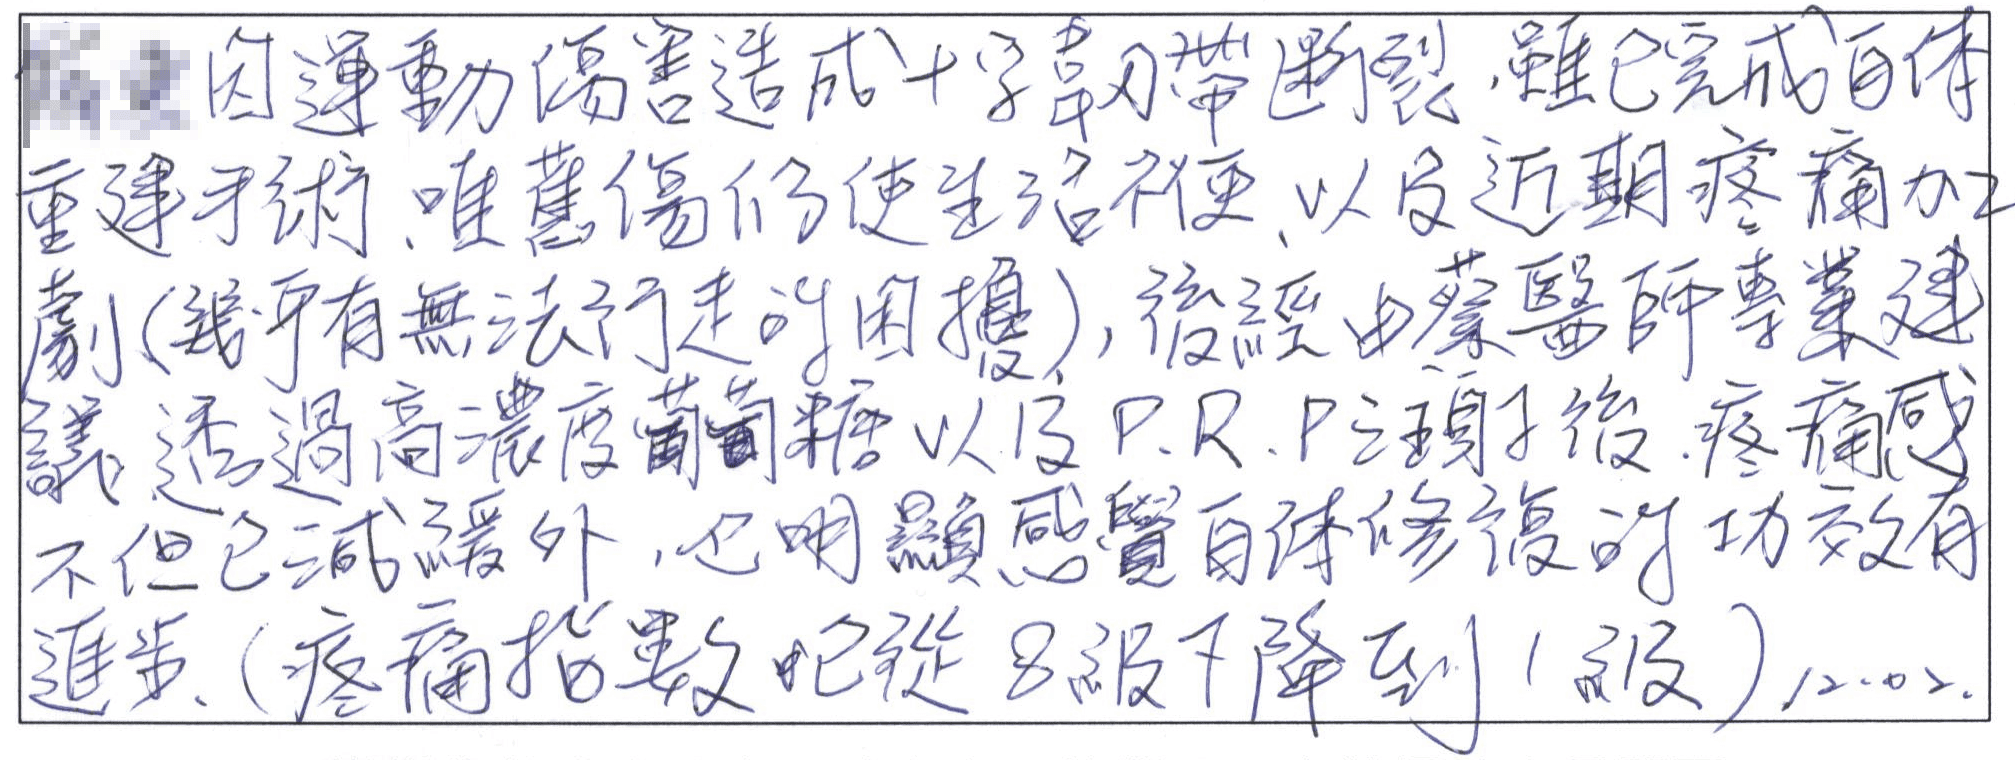 因運動傷害造成十字韌帶斷裂,雖已完成自体
重建手術、唯舊傷仍使生活不便、以及近期疼痛加
劇(幾乎有無法行走的困擾),後經由蔡醫師專業建
議、透過高濃度葡萄糖以及P.R.P注射後、疼痛感
不但已減緩外,也明顯感覺自体修復的功效有
進步、(疼痛指數 從8級下降到1級),12.02.